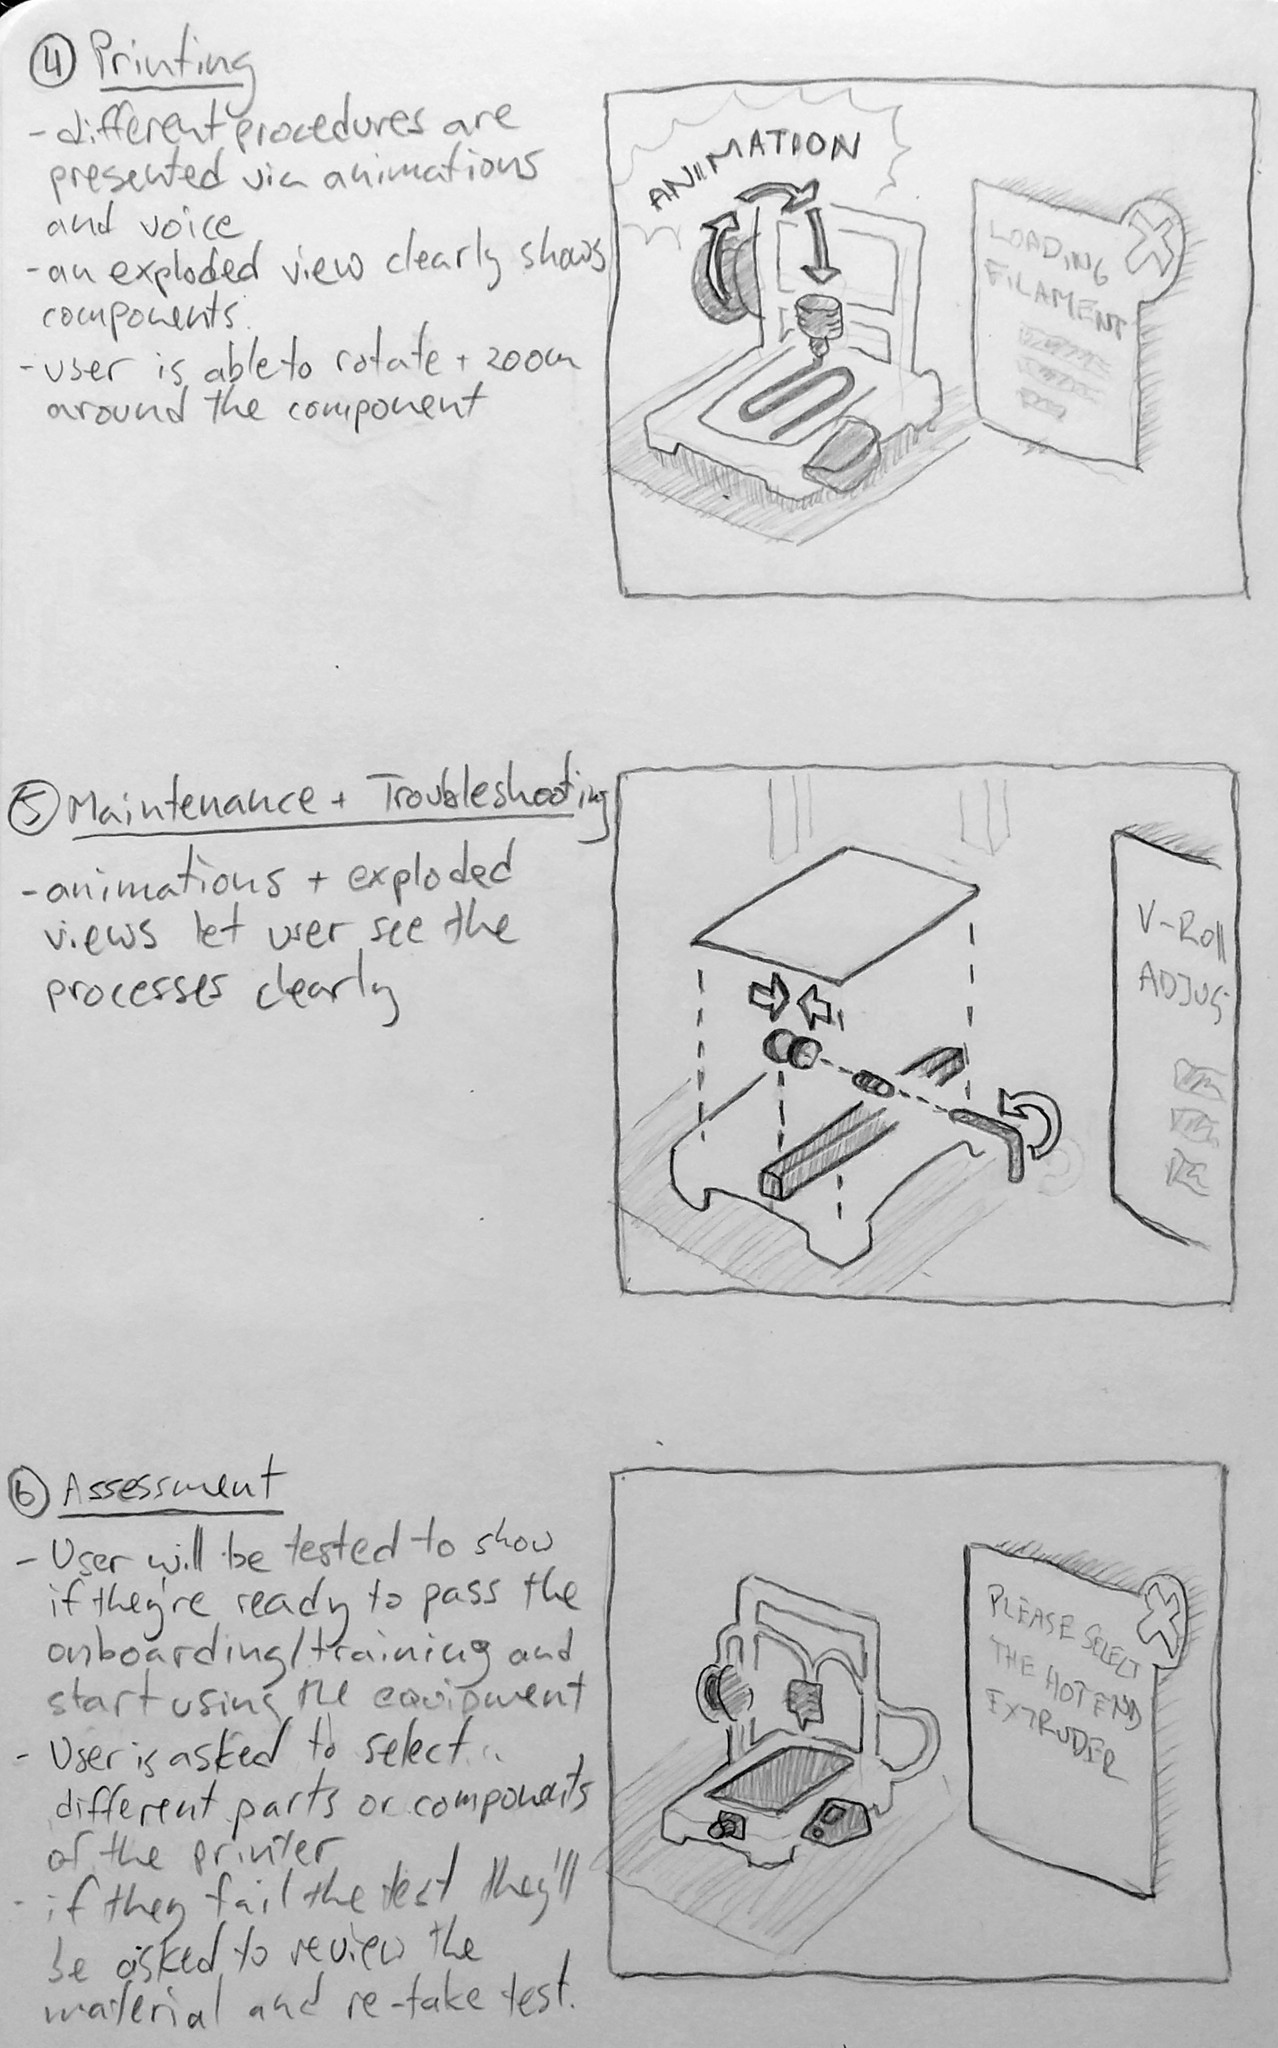 4 Printing
- different procedures are
presented via animations
and voice
- an exploded view clearly shows
components.
- user is able to rotate + zoom
around the component
ANIMATION
LOADING
FILAMENT
5 Maintenance + Troubleshooting
- animations + exploded
views let user see the
processes clearly
V-Roll
ADJUS
6 Assessment
- User will be tested to show
if they're ready to pass the
onboarding/training and
start using the equipment
- User is asked to select
different parts or components
of the printer
- if they fail the test they'll
be asked to review the
material and re-take test.
PLEASE SELECT
THE HOT END
EXTRUDER